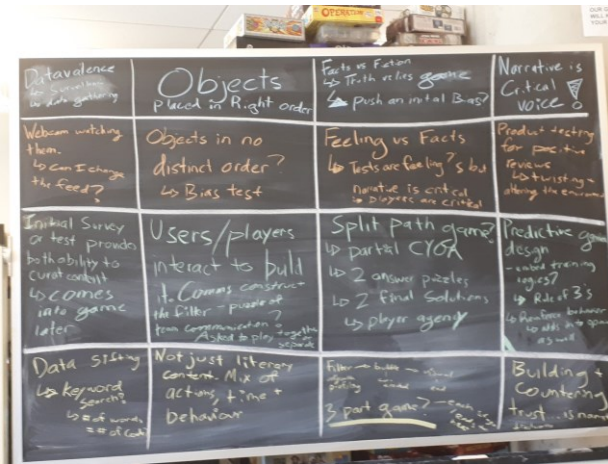 OPERATION
OUR G
WILL
YOUR
Datavalence
↳ Surveillance
↳ data gathering
Objects
placed in Right order
Facts vs Fiction
↳ Truth vs lies game
push an inital Bias?
Narrative is
Critical
voice !
Webcam watching
them.
↳ Can I change
the feed?
Objects in no
distinct order?
↳ Bias test
Feeling vs Facts
↳ Tests are feeling?'s but
narative is critcal
↳ players are critical
Product testing
for positive
reviews
↳ twisting +
altering the environm
Initial Survey
or test provides
both ability to
curat content
↳ comes
into game
later
Users/players
interact to build
it. Comms construct
the filter - puzzle of
team communication?
Asked to play together
or separate
Split path game?
↳ partial CYOA
↳ 2 answer puzzles
↳ 2 Final Solutions
↳ player agency
Predictive game
design
- embed training
logics?
↳ Rule of 3's
↳ Reinforce behavior
↳ adds into
as well
Data sifting
↳ keyword
search?
↳ # of words
= # of code
Not just literary
content. Mix of
actions, time +
behaviour
Filter bubble
3 part game? - each
Building +
Countering
trust... is